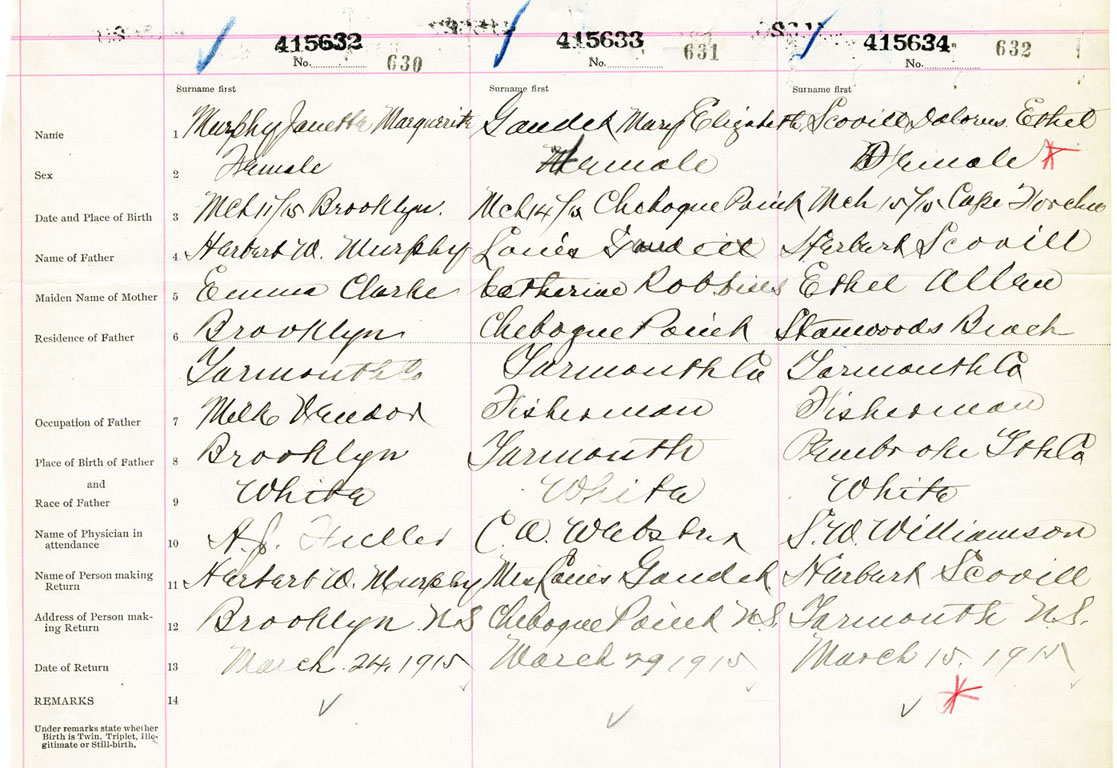 415632 415633 415634
No. 630 No. 631 No. 632
Surname first Surname first Surname first
Name 1 Murphy Janetta Marguerite Gaudet Mary Elizabeth Scovill Dolorus Ethel
Sex 2 Female Female Female
Date and Place of Birth 3 Mch 11/15 Brooklyn. Mch 14/15 Chebogue Point Mch 15/15 Cape Forchu
Name of Father 4 Herbert W. Murphy Louis Gaudet Herbert Scovill
Maiden Name of Mother 5 Emma Clarke Catherine Robbins Ethel Allen
Residence of Father 6 Brooklyn Chebogue Point Stanwoods Beach
Yarmouth Co Yarmouth Co Yarmouth Co
Occupation of Father 7 Milk Vendor Fisherman Fisherman
Place of Birth of Father 8 Brooklyn Yarmouth Pembroke Yth Co
and
Race of Father 9 White White White
Name of Physician in
attendance 10 A.J. Fuller C.A. Webster S.W. Williamson
Name of Person making
Return 11 Herbert W. Murphy Mrs Louis Gaudet Herbert Scovill
Address of Person mak-
ing Return 12 Brooklyn N.S Chebogue Point N.S. Yarmouth N.S.
Date of Return 13 March 24, 1915 March 29 1915 March 15, 1915
REMARKS 14
Under remarks state whether
Birth is Twin, Triplet, Ille-
gitimate or Still-birth.